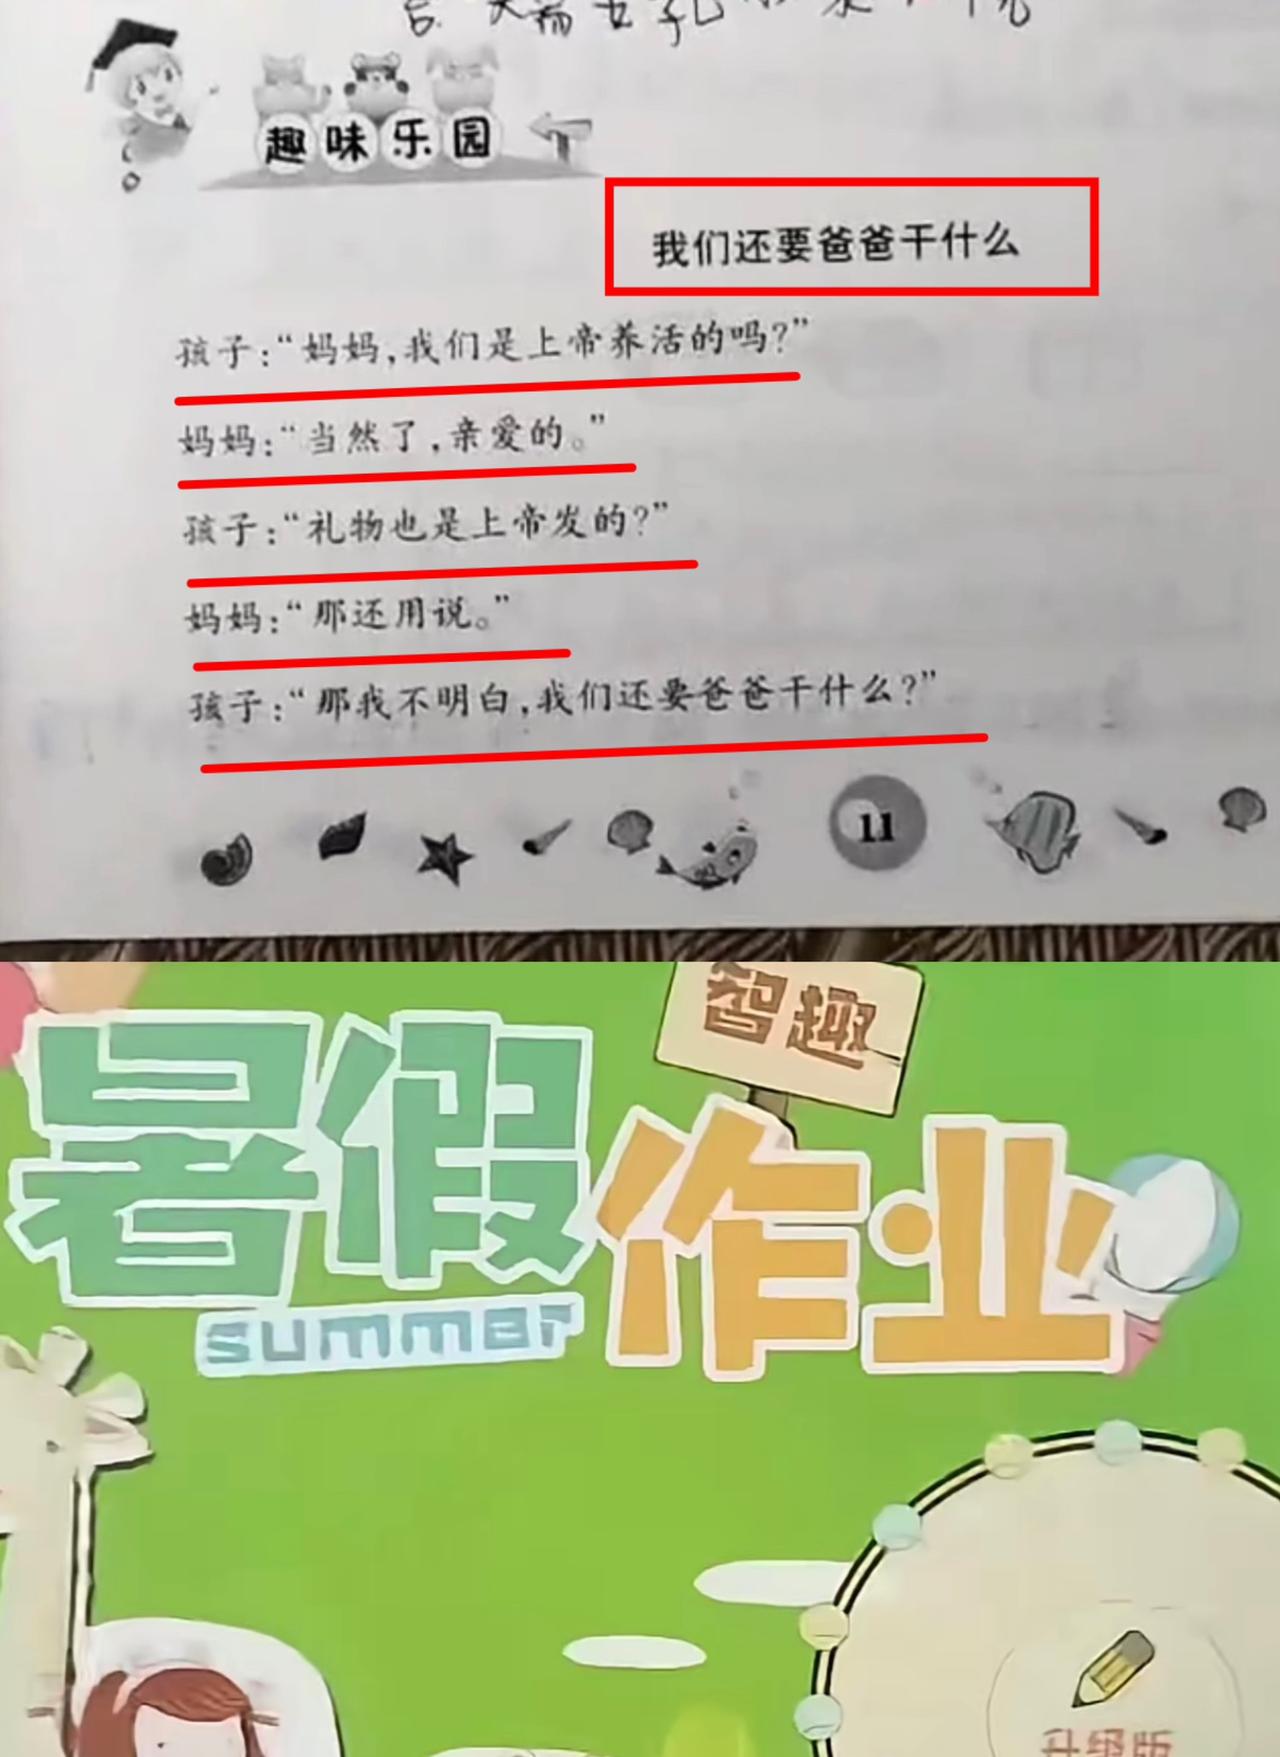 趣味乐园
我们还要爸爸干什么
孩子:“妈妈,我们是上帝养活的吗?”
妈妈:“当然了,亲爱的。”
孩子:“礼物也是上帝发的?”
妈妈:“那还用说。”
孩子:“那我不明白,我们还要爸爸干什么?”
11
智趣
暑假作业
summer
升级版